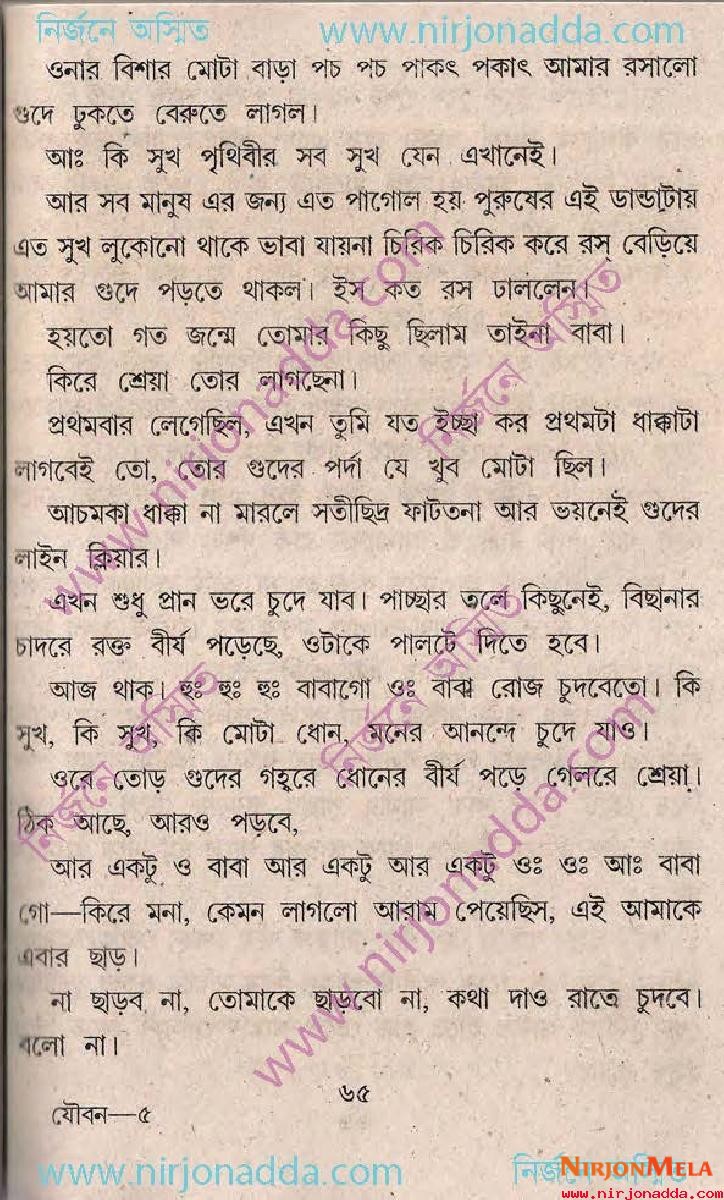 নির্জনে অস্মিত www.nirjonadda.com
ওনার বিশার মোটা বাড়া পচ পচ পাকৎ পকাৎ আমার রসালো
গুদে ঢুকতে বেরুতে লাগল।
আঃ কি সুখ পৃথিবীর সব সুখ যেন এখানেই।
আর সব মানুষ এর জন্য এত পাগোল হয় পুরুষের এই ডান্ডাটায়
এত সুখ লুকোনো থাকে ভাবা যায়না চিরিক চিরিক করে রস্ বেড়িয়ে
আমার গুদে পড়তে থাকল। ইস কত রস ঢাললেন।
হয়তো গত জন্মে তোমার কিছু ছিলাম তাইনা বাবা।
কিরে শ্রেয়া তোর লাগছেনা।
প্রথমবার লেগেছিল, এখন তুমি যত ইচ্ছা কর প্রথমটা ধাক্কাটা
লাগবেই তো, তোর গুদের পর্দা যে খুব মোটা ছিল।
আচমকা ধাক্কা না মারলে সতীছিদ্র ফাটতনা আর ভয়নেই গুদের
লাইন ক্লিয়ার।
এখন শুধু প্রান ভরে চুদে যাব। পাচ্ছার তলে কিছুনেই, বিছানার
চাদরে রক্ত বীর্য পড়েছে, ওটাকে পালটে দিতে হবে।
আজ থাক। হুঃ হুঃ হুঃ বাবাগো ওঃ বাবা রোজ চুদবেতো। কি
সুখ, কি সুখ, কি মোটা ধোন, মনের আনন্দে চুদে যাও।
ওরে তোড় গুদের গহ্বরে ধোনের বীর্য পড়ে গেলরে শ্রেয়া।
ঠিক আছে, আরও পড়বে,
আর একটু ও বাবা আর একটু আর একটু ওঃ ওঃ আঃ বাবা
গো—কিরে মনা, কেমন লাগলো আরাম পেয়েছিস, এই আমাকে
এবার ছাড়।
না ছাড়ব না, তোমাকে ছাড়বো না, কথা দাও রাতে চুদবে।
বলো না।
৬৫
যৌবন—৫
www.nirjonadda.com নির্জনে অস্মিত
NIRJONMELA
www.nirjonadda.com
www.nirjonadda.com
নির্জনে অস্মিত
নির্জনে অস্মিত
নির্জনে অস্মিত
www.nirjonadda.com